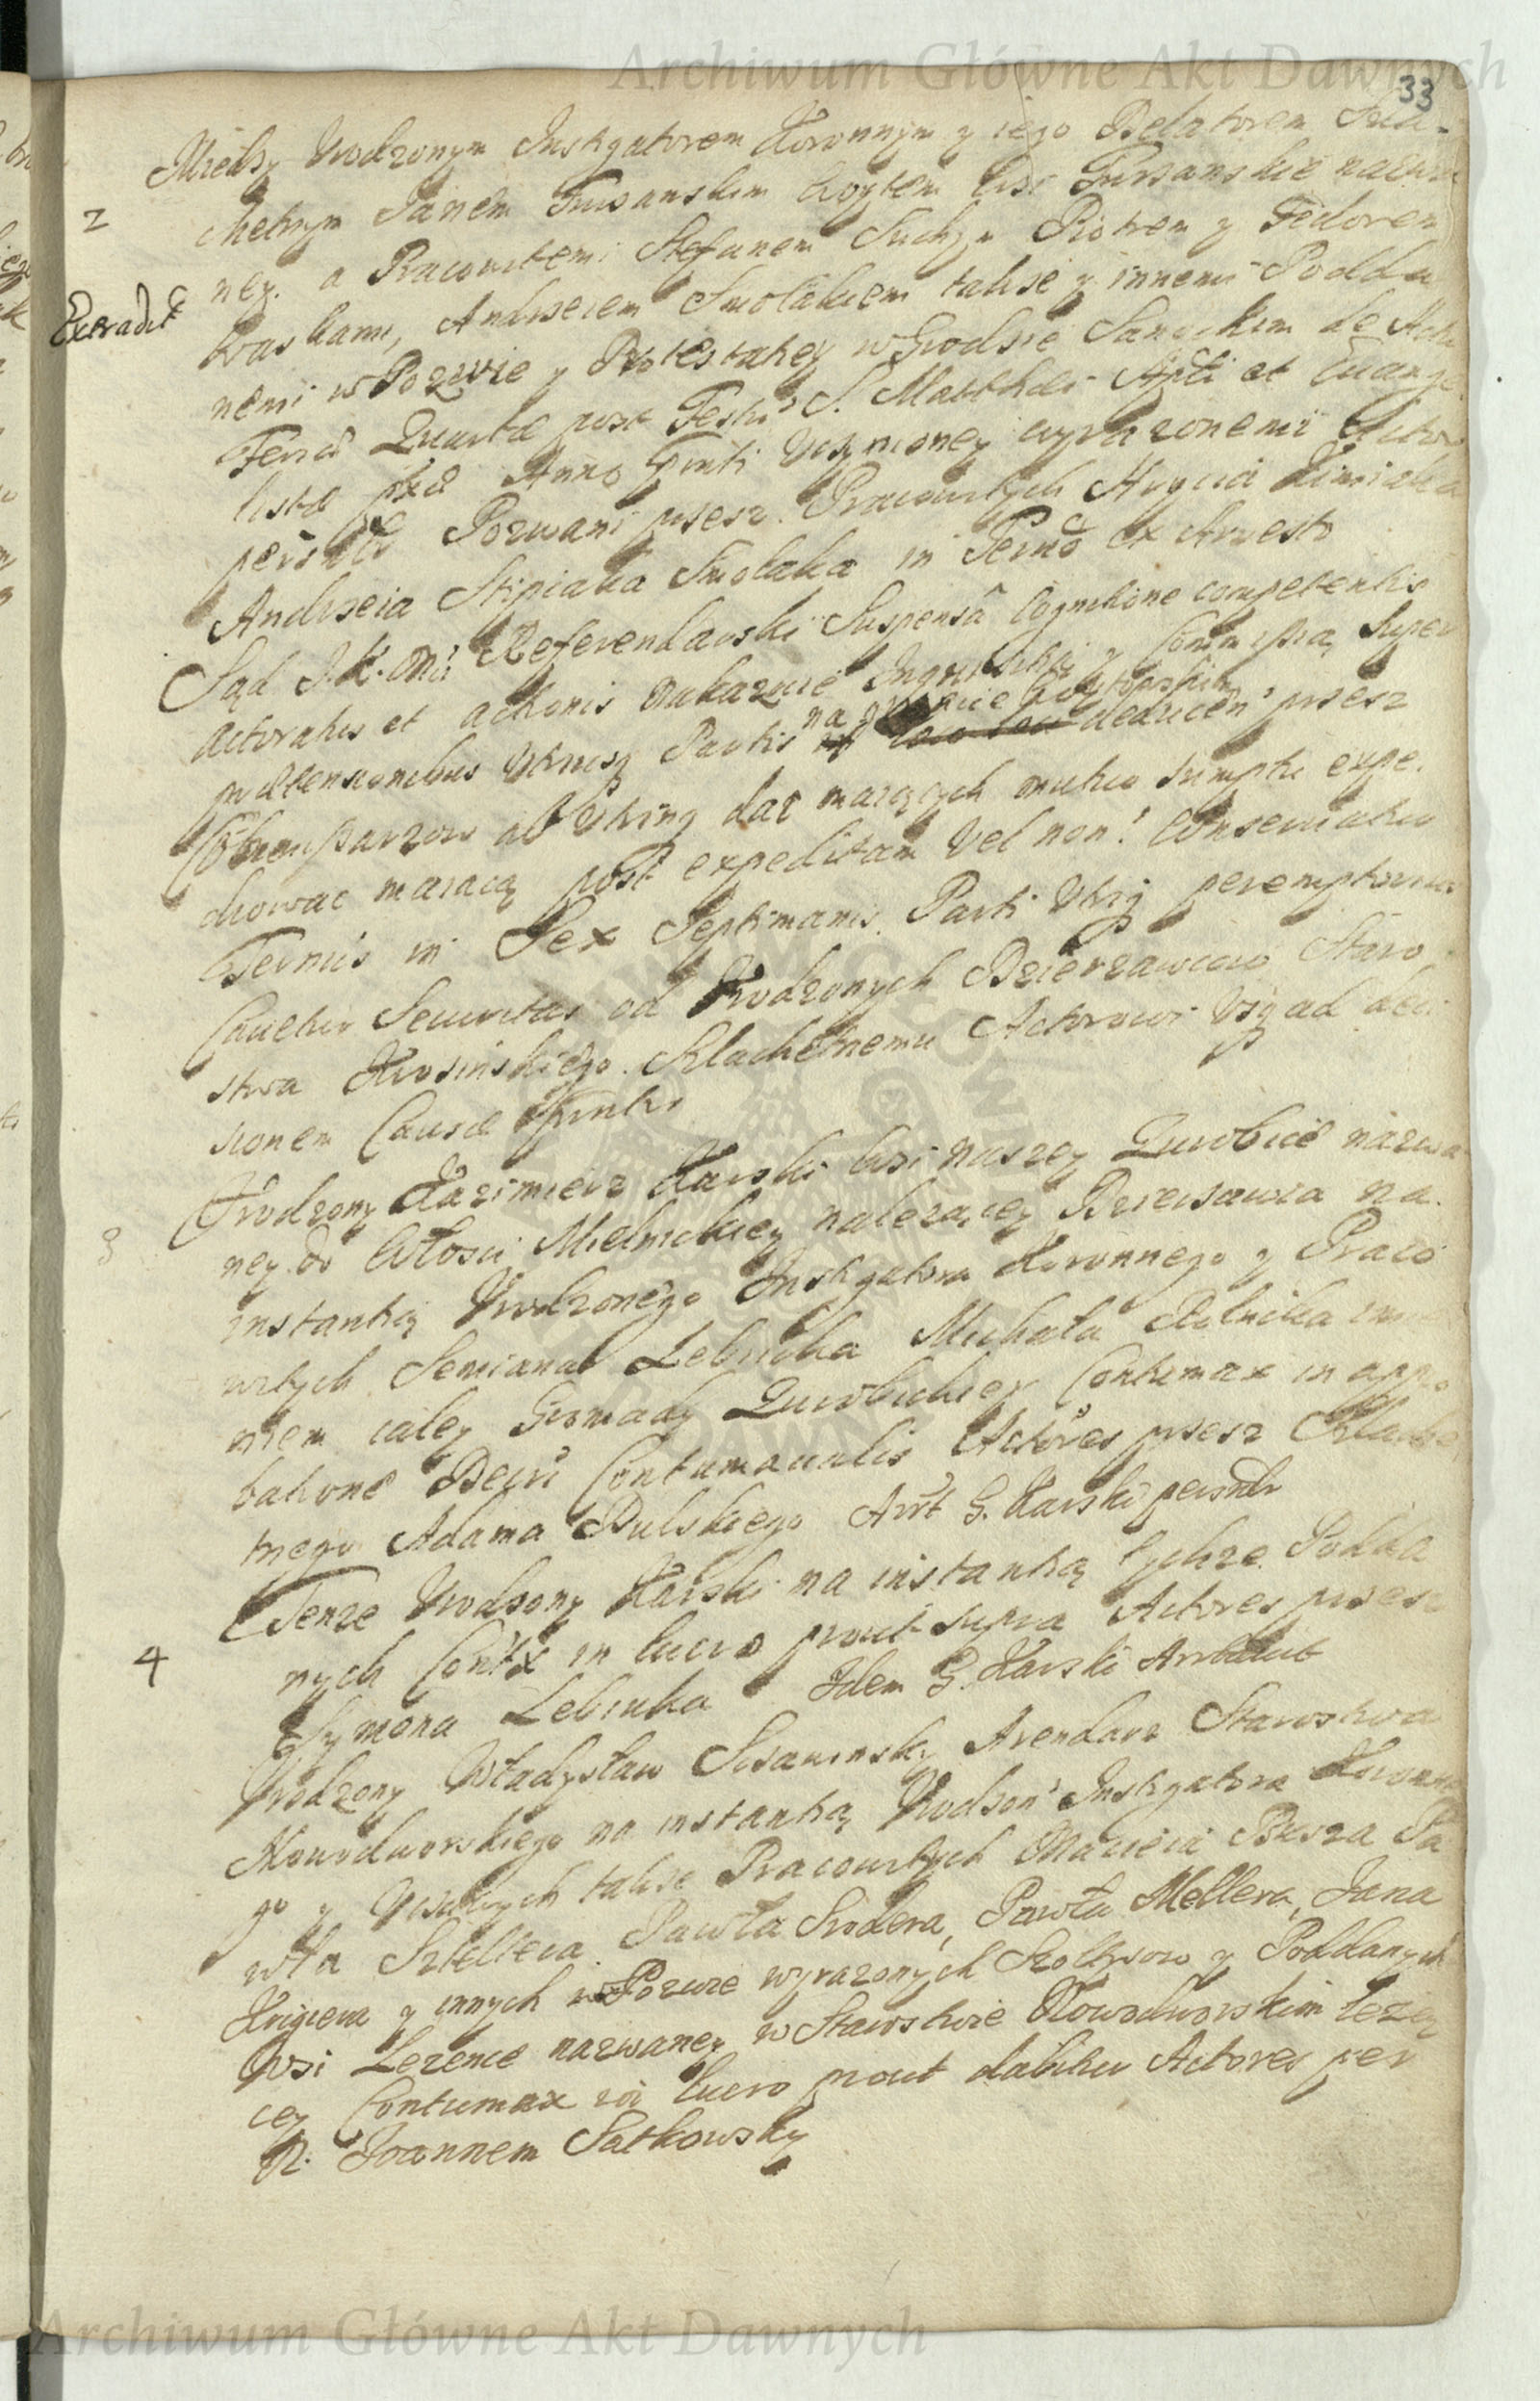 Archiwum Główne Akt Dawnych
33
Między Urodzonym Instygatorem Koronnym y iego Delatorem Szla-
2
chetnym Janem Tursanskim Woytem Wsi Tursanskie nazwa
ney. a Pracowitemi Stefanem Suchym Piotrem y Fedorem
Extradit
Waskami, Andrzeiem Smolakiem także y innemi Podda
nemi w Pozwie y Protestacyey w Grodzie Sanockim de Actu
Feria Quarta post Festu S. Matthaei Apli et Euange
lista pxa Anno Pnti Uczynioney wyrazonemi Actor
persnlr Pozwani przesz Pracowitych Hrycia Kimiaka
Andrzeia Stipiaka Smolaka in Termo ex Arresto
Sąd J.K.Mci Referendarski Suspensa Cognitione competentis
Actoratus et actionis nakazuie Inquisitią y Commissią Super
prætensionibus Utriusq Partis na gruncie deducen przesz
Commissarzow ab Utrinq dać maiących mutuo sumptu expe.
diowac maiącą post expeditam Vel non! Conservatur
Termus in Sex Septimanis Parti Utriq peremptorius
Cavetur Securitas od Urodzonych Dzierzawcow Staro
stwa Krosinskiego Szlachetnemu Actorowi Usq ad deci
sionem Causæ Pntis
3
Urodzony Kazimierz Karski Wsi naszey Zurobice nazwa
ney do Włosci Mielnickiey nalezącey Dzierzawca na
instantią Urodzonego Instygatora Koronnego y Praco
witych Semiana Lebiuka Michała Rolnika imie
niem całey Gromady Zurobickiey Contumax in appro
batione Decri Contumacialis Actores przesz Szlache
tnego Adama Dulskiego Arrt G. Karski persnlr
Tenze Urodzony Karski na instantią tychze Podda
4
nych Contx in lucro prout supra Actores przesz
Szymona Lebiuka Idem G. Karski Arrestavit
Urodzony Władysław Sisaminsky Arendarz Starostwa
Nowodworskiego na instantią Urodzon Instygatora Koronne
go y także Pracowitych Macieia Busza Pa
wła Sztelfera Pawła Srodera, Pawła Mellera, Jana
Krigiera y innych w Pozwie wyrazonych Szołtysow y Poddanych
Wsi Lezence nazwaney w Starostwie Nowodworskim lezą
cey Contumax in lucro prout dabitur Actores per
N. Joannem Satkowsky
Archiwum Główne Akt Dawnych